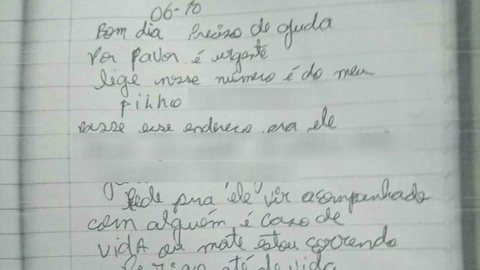 06-10
Bom dia Preciso de ajuda
Por favor é urgente
lige nesse número é do meu
filho
esse endereco era ele
Pede pra ele vir acompanhado
com alguém é caso de
vida ou mate estou correndo
até de vida